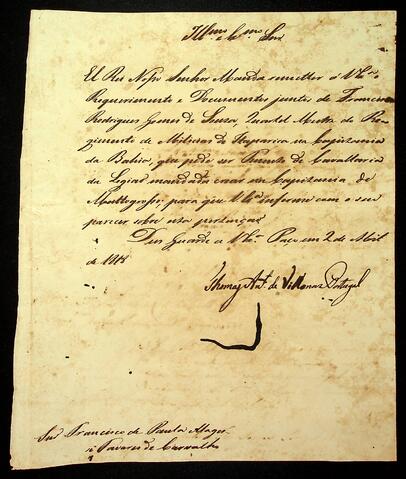 Illmo. e Exmo. Snr.
El Rei Nosso Senhor Manda remetter á V. Exa. o
Requerimento e Documentos juntos de Francisco
Rodrigues Gomes de Souza, Quartel Mestre do Re-
gimento de Milicias de Itaparica na Capitania
da Bahia, que pede ser Tenente de Cavallaria
da Legião mandada crear na Capitania de
Mattogrosso, para que V. Exa. informe com o seu
parecer sobre esta pertenção
Deos Guarde a V. Exa. Paço em 2 de Abril
de 1818
Thomaz Anto. de Villanova Portugal
Snr. Francisco de Paula Magessi
Tavares de Carvalho